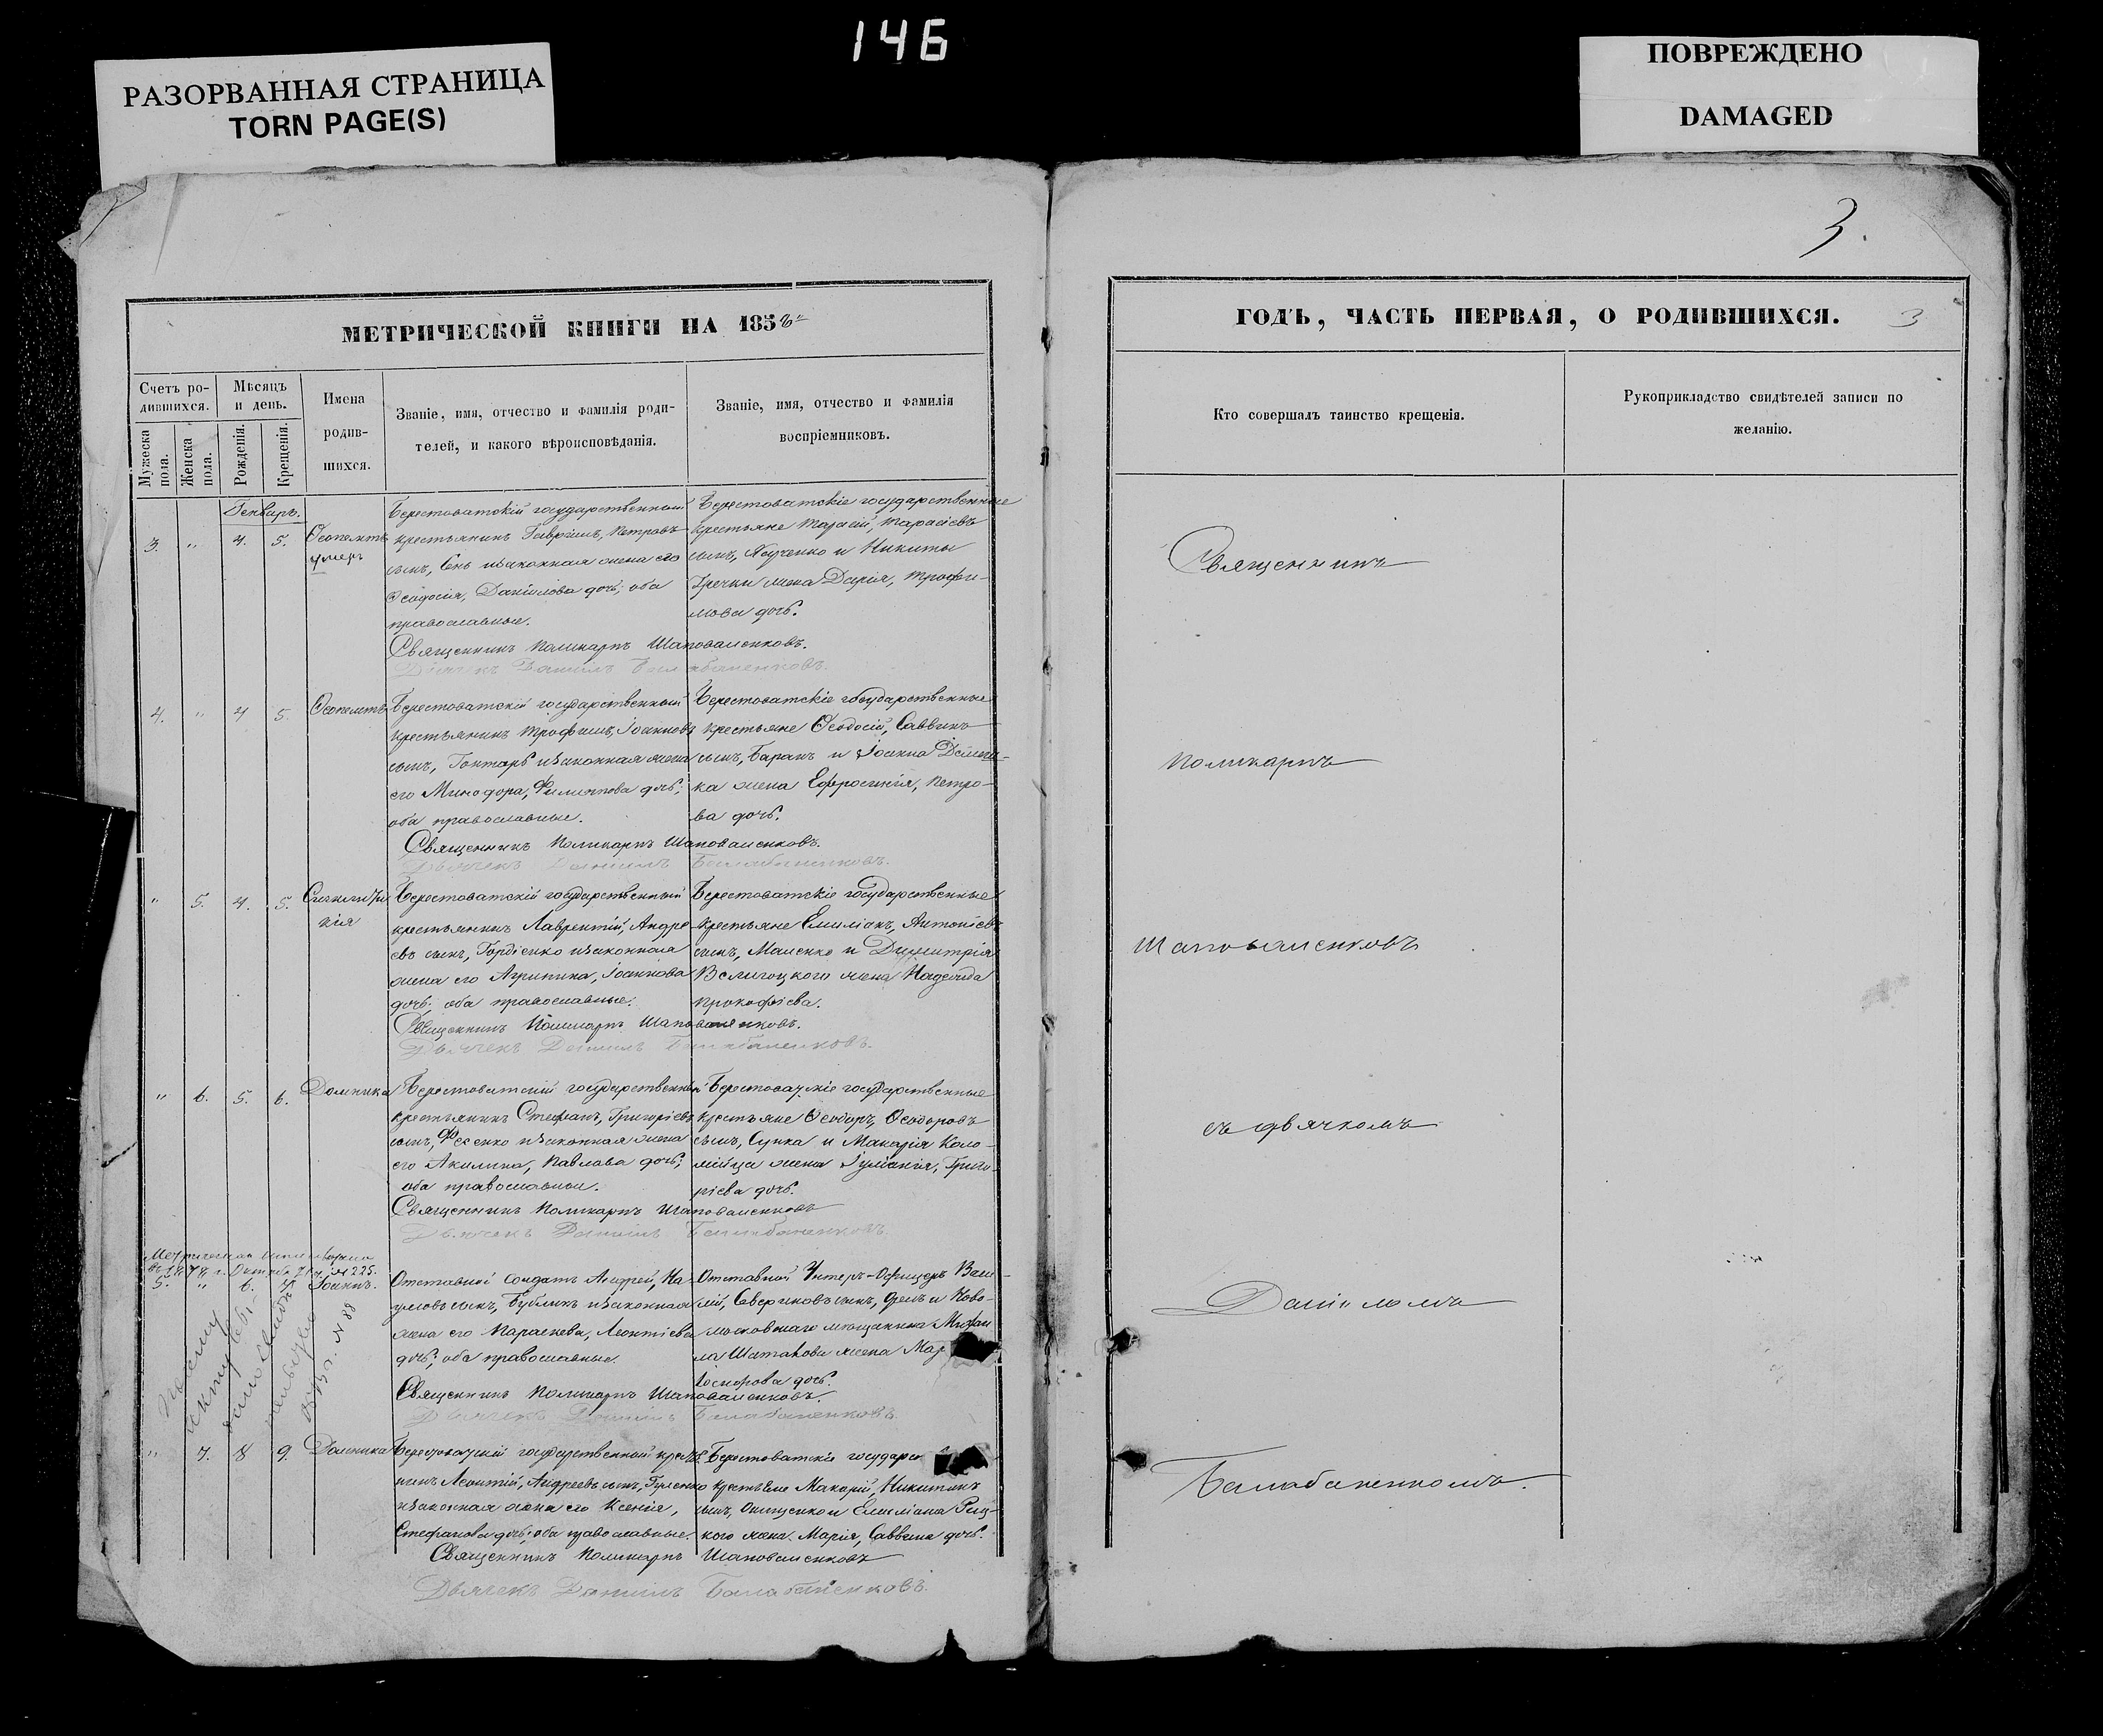 146
РАЗОРВАННАЯ СТРАНИЦА
TORN PAGE(S)
ПОВРЕЖДЕНО
DAMAGED
3.
МЕТРИЧЕСКОЙ КНИГИ НА 1858й
Счетъ ро-
дившихся.
Мужеска
пола.
Женска
пола.
Мѣсяцъ
и день.
Рожденія.
Крещенія.
Имена
родив-
шихся.
Званіе, имя, отчество и фамилія роди-
телей, и какого вѣроисповѣданія.
Званіе, имя, отчество и фамилія
воспріемниковъ.
Генварь.
3. " 4. 5. Ѳеопемптъ
умеръ
Берестоватскій государственный
крестьянинъ Георгій, Петровъ
сынъ, и законная жена его
Ѳеодосія, Даніилова дочь; оба
православные.
Берестоватскіе государственные
крестьяне Тарасій, Тарасіевъ
сынъ, и Никиты
Гречки жена Дарія, Трофи-
мова дочь.
Священникъ Поликарпъ Шаповаленковъ.
Дьячекъ Даніилъ Балабаненковъ.
4. " 4 5. Ѳеопемптъ
Берестоватскій государственный
крестьянинъ Трофимъ, Іоанновъ
сынъ, Гонтарь и законная жена
его Минодора, Филиппова дочь;
оба православные.
Берестоватскіе государственные
крестьяне Ѳеодосій, Саввинъ
сынъ, Баранъ и Іоанна
ка жена Ефросинія, Петро-
ва дочь.
Священникъ Поликарпъ Шаповаленковъ.
Дьячекъ Даніилъ Балабаненковъ.
" 5. 4. 5. Синклити
кія
Берестоватскій государственный
крестьянинъ Лаврентій, Андре
евъ сынъ, Гордіенко и законная
жена его Агрипина, Іоаннова
дочь; оба православные.
Берестоватскіе государственные
крестьяне Емиліанъ, Антоніевъ
сынъ, Маленко и Димитрія
Велигоцкого жена Надежда
Прокофіева.
Священникъ Поликарпъ Шаповаленковъ.
Дьячекъ Даніилъ Балабаненковъ.
" 6. 5. 6. Домника
Берестоватскій государственный
крестьянинъ Стефанъ, Григоріевъ
сынъ, Фесенко и законная жена
его Акилина, Павлова дочь;
оба православные.
Берестоватскіе государственные
крестьяне Ѳеодоръ, Ѳеодоровъ
сынъ, Супка и Макарія Коло-
мійца жена Іуліанія, Григо-
рієва дочь.
Священникъ Поликарпъ Шаповаленковъ
Дьячекъ Даніилъ Балабаненковъ.
5. " 6. 7. Іоаннъ.
Отставной солдатъ Андрей, На-
умовъ сынъ, Бубликъ и законная
жена его Параскева, Леонтіева
дочь; оба православные.
Отставной Унтеръ-Офицеръ Васи-
лій, Севериновъ сынъ, и Ново-
московскаго мѣщанина Михаи
ла Шатахова жена Мар
дочь.
Священникъ Поликарпъ Шаповаленковъ.
Дьячекъ Даніилъ Балабаненковъ.
" 7. 8 9. Домника
Берестоватскій государственный кресть
нинъ Леонтій, Андреевъ сынъ,
и законная жена его Ксенія,
Стефанова дочь; оба православные.
Берестоватскіе государст
крестьяне Макарій, Никитинъ
сынъ, Онищенко и Емиліана
кого жена Марія, Саввина дочь.
Священникъ Поликарпъ Шаповаленковъ
Дьячекъ Даніилъ Балабаненковъ.
ГОДЪ, ЧАСТЬ ПЕРВАЯ, О РОДИВШИХСЯ.
3
Кто совершалъ таинство крещенія.
Рукоприкладство свидѣтелей записи по
желанію.
Священникъ
Поликарпъ
Шаповаленковъ
съ дьячкомъ
Даніиломъ
Балабаненкомъ.